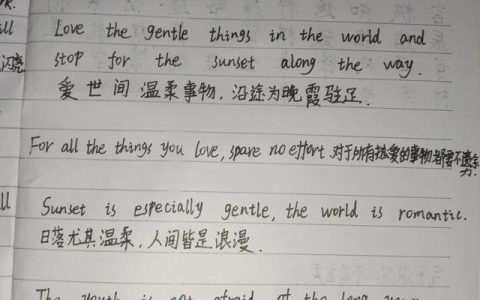 Love the gentle things in the world and
stop for the sunset along the way.
爱世间温柔事物，沿途为晚霞驻足.
For all the things you love, spare no effort.对于所有热爱的事物都要不遗余
力.
Sunset is especially gentle, the world is romantic.
日落尤其温柔，人间皆是浪漫.
The youth is not afraid of the long